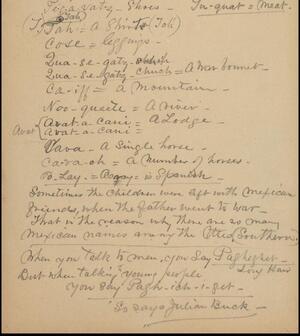 Shoes - In-quat = (meat.
Tah = a Shirt (Tah)
Cose = leggings -
Qua-se-gaty-
Qua-se-gaty-church = A War bonnet
Ca-iff = a Mountain -
Noo-queite = A river -
Avat-a-cani = A Lodge -
Avat-a-cani =
Vava - a Single horse -
Ca-va-oh = a number of horses.
is Spanish -
Sometimes the Children were left with Mexican
friends, when the father went to War -
That is the reason why there are so many
Mexican names among the Southern
When you talk to men, you Say
Long Hair
But when talking young people
you say Pagh-ich-i-get -
So Says Julian Buck -